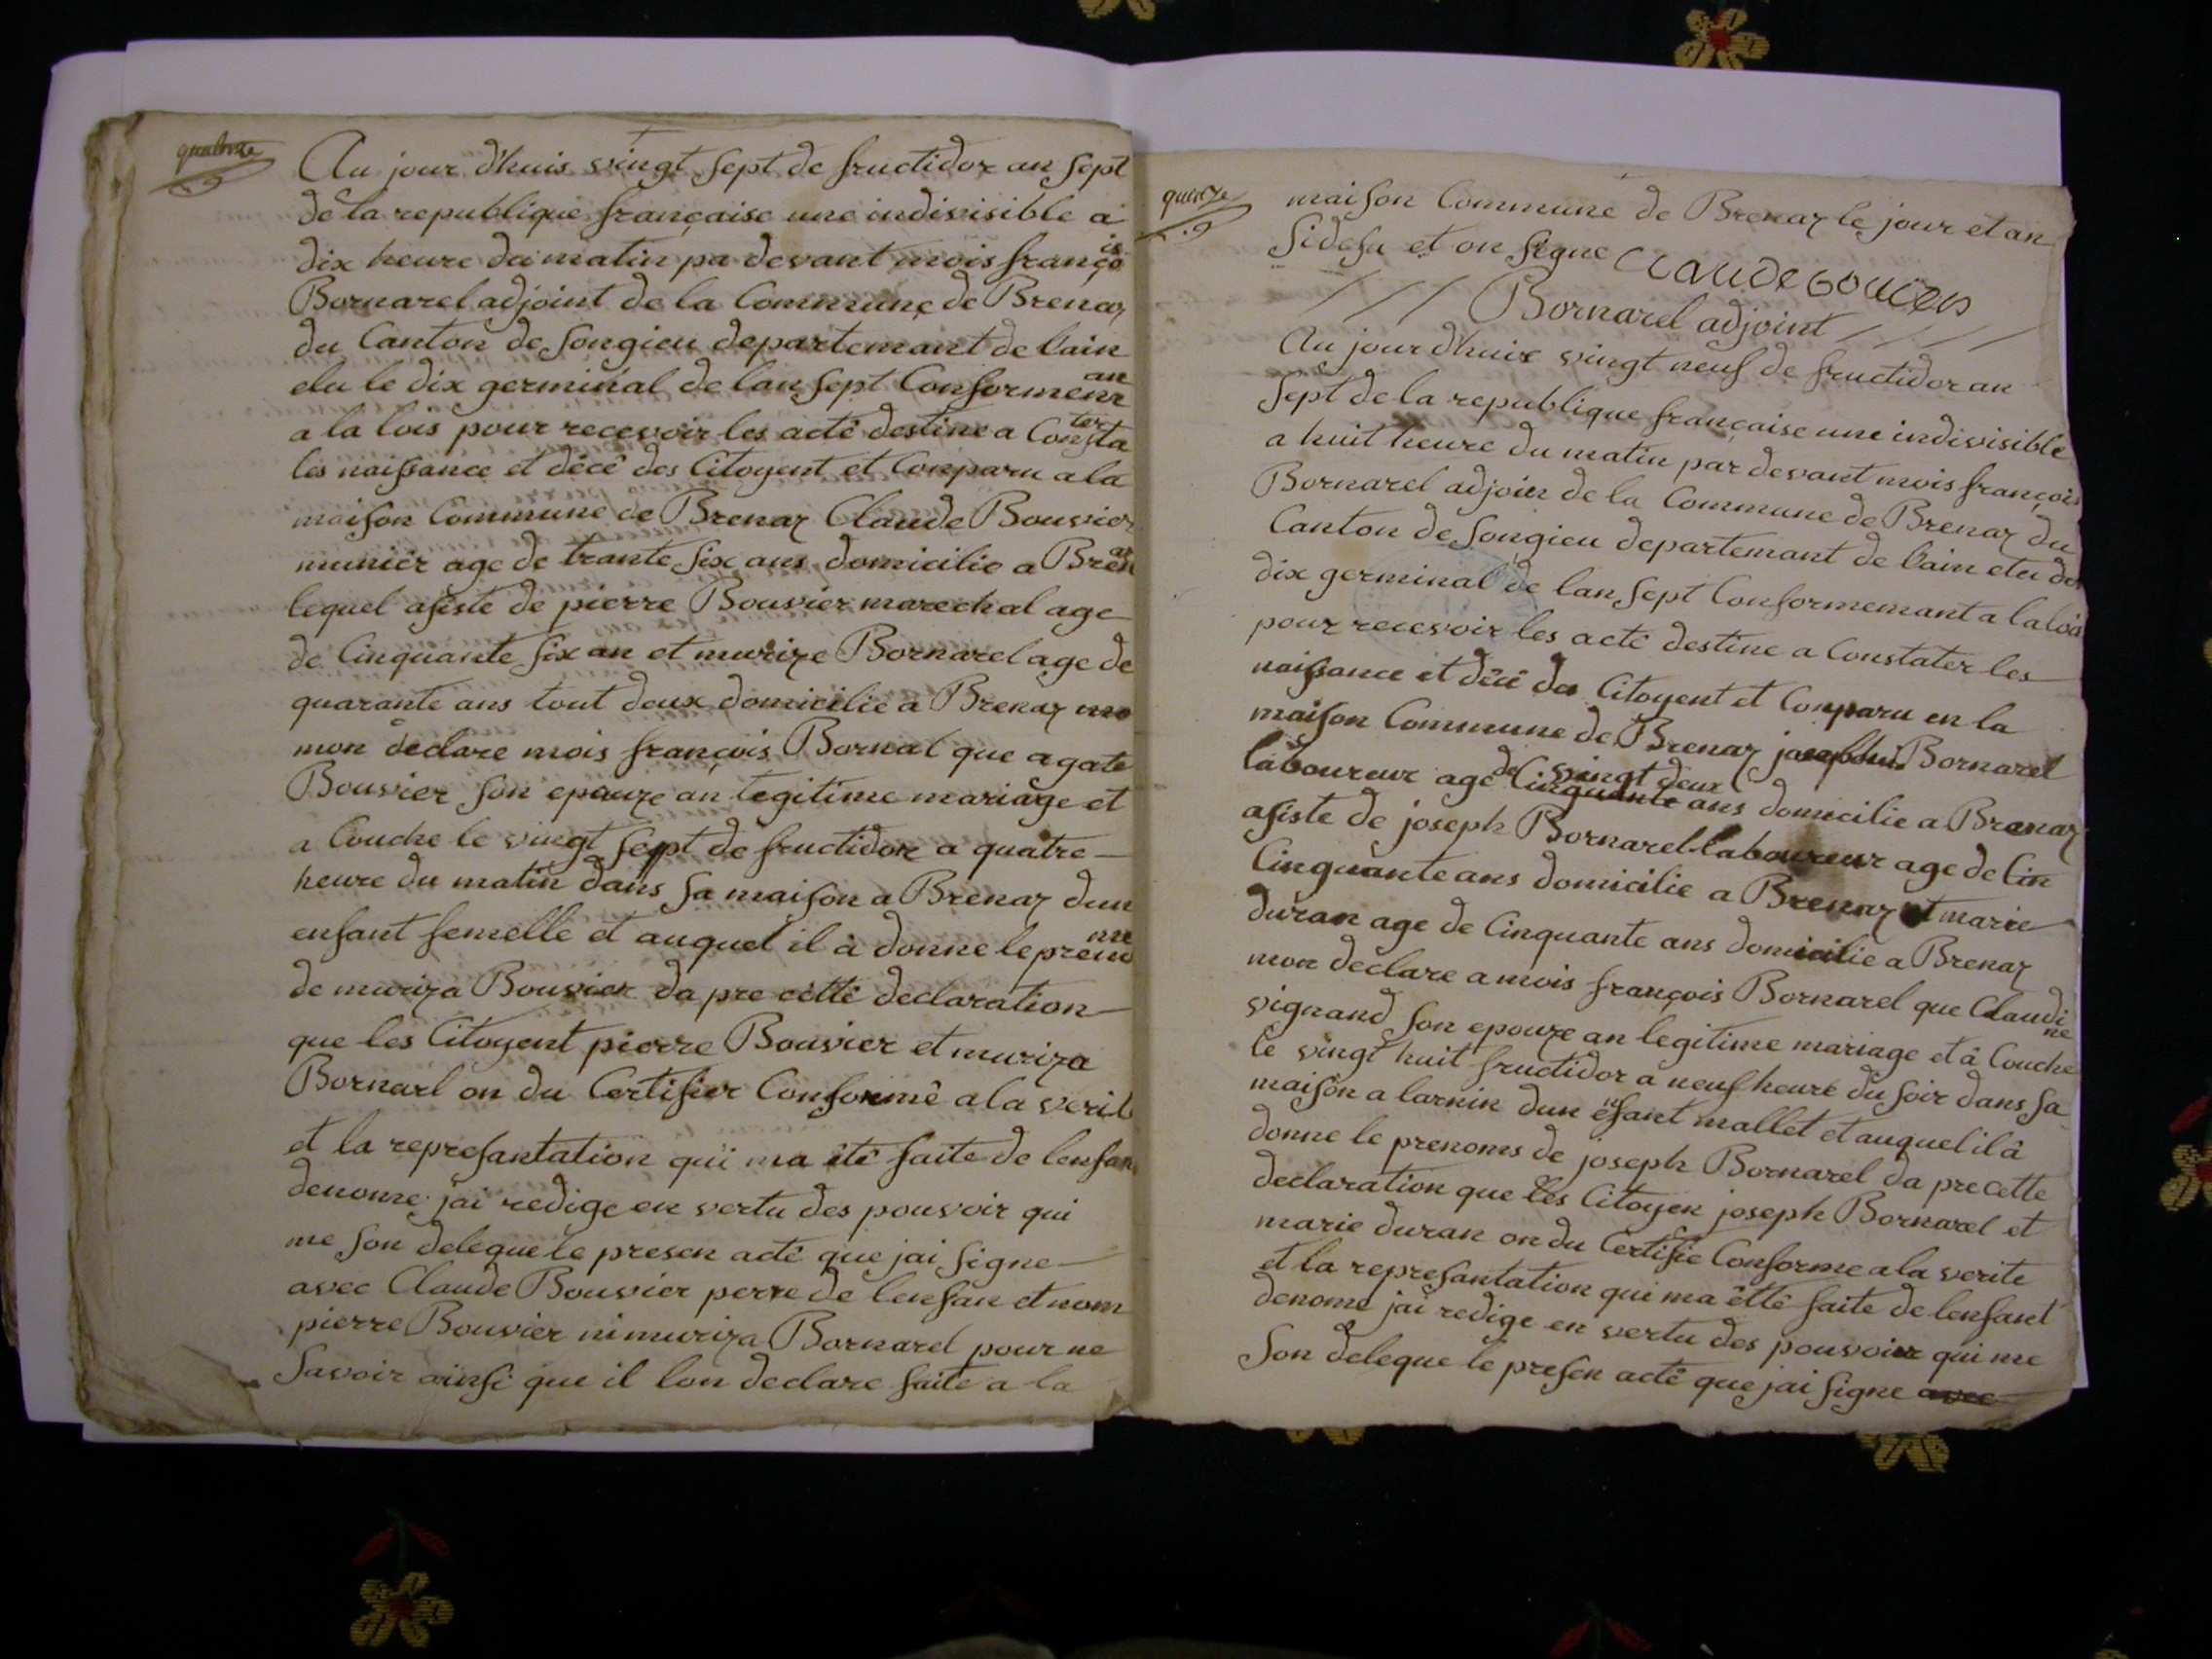 quatorze
Au jour d'huis vingt sept de fructidor an sept
de la republique française une indivisible a
dix heure du matin pa devant mois françois
Bornarel adjoint de la Commune de Brenaz
du Canton de songieu departemant de lain
elu le dix germinal de lan sept Conformeman
a la lois pour recevoir les acté destine a Constater
les naissance et décé des Citoyent et Conparu a la
maison Commune de Brenaz Claude Bouvier
munier age de trante six ans domicilie a Brenaz
lequel asiste de pierre Bouvier marechal age
de Cinquante six an et murize Bornarel age de
quarante ans tout deux domicilie a Brenaz
mon declare mois françois Bornal que agate
Bouvier son epouze an legitime mariage et
a Couche le vingt sept de fructidor a quatre
heure du matin dans sa maison a Brenaz dun
enfant femelle et auquel il à donne le prenome
de muriza Bouvier da pre cette declaration
que les Citoyent pierre Bouvier et muriza
Bornarl on du Certifier Conformé a la verit
et la represantation qui ma été faite de lenfan
denome jai redige en vertu des pouvoir qui
me son delegue le presen acté que jai signe
avec Claude Bouvier perre de lenfan et nom
pierre Bouvier ni muriza Bornarel pour ne
savoir ainsi que il lon declare faite a la
quinze
maison Commune de Brenaz le jour et an
sidesu et on signe Claude bouvier
Bornarel adjoint
Au jour d'huix vingt neuf de fructidor an
sept de la republique française une indivisible
a huit heure du matin par devant mois françois
Bornarel adjoin de la Commune de Brenaz du
Canton de songieu departemant de lain elu
dix germinal de lan sept Conformemant a la lois
pour recevoir les acté destine a Constater les
naissance et décé des Citoyent et Conparu en la
maison Commune de Brenaz Bornarel
laboureur age de vingt deux Cinquante ans domicilie a Brenaz
asiste de joseph Bornarel laboureur age de Cin
Cinquante ans domicilie a Brenaz et marie
duran age de Cinquante ans domicilie a Brenaz
mon declare a mois françois Bornarel que Claudine
vignand son epouze an legitime mariage et à Couche
le vingt huit fructidor a neuf heure du soir dans sa
maison a larnin dun enfant mallet et auquel il à
donne le prenoms de joseph Bornarel da pre cette
declaration que les Citoyen joseph Bornarel et
marie duran on du Certifie Conforme a la verite
et la represantation qui ma étté faite de lenfant
denome jai redige en vertu des pouvoir qui me
son delegue le presen acté que jai signe avec